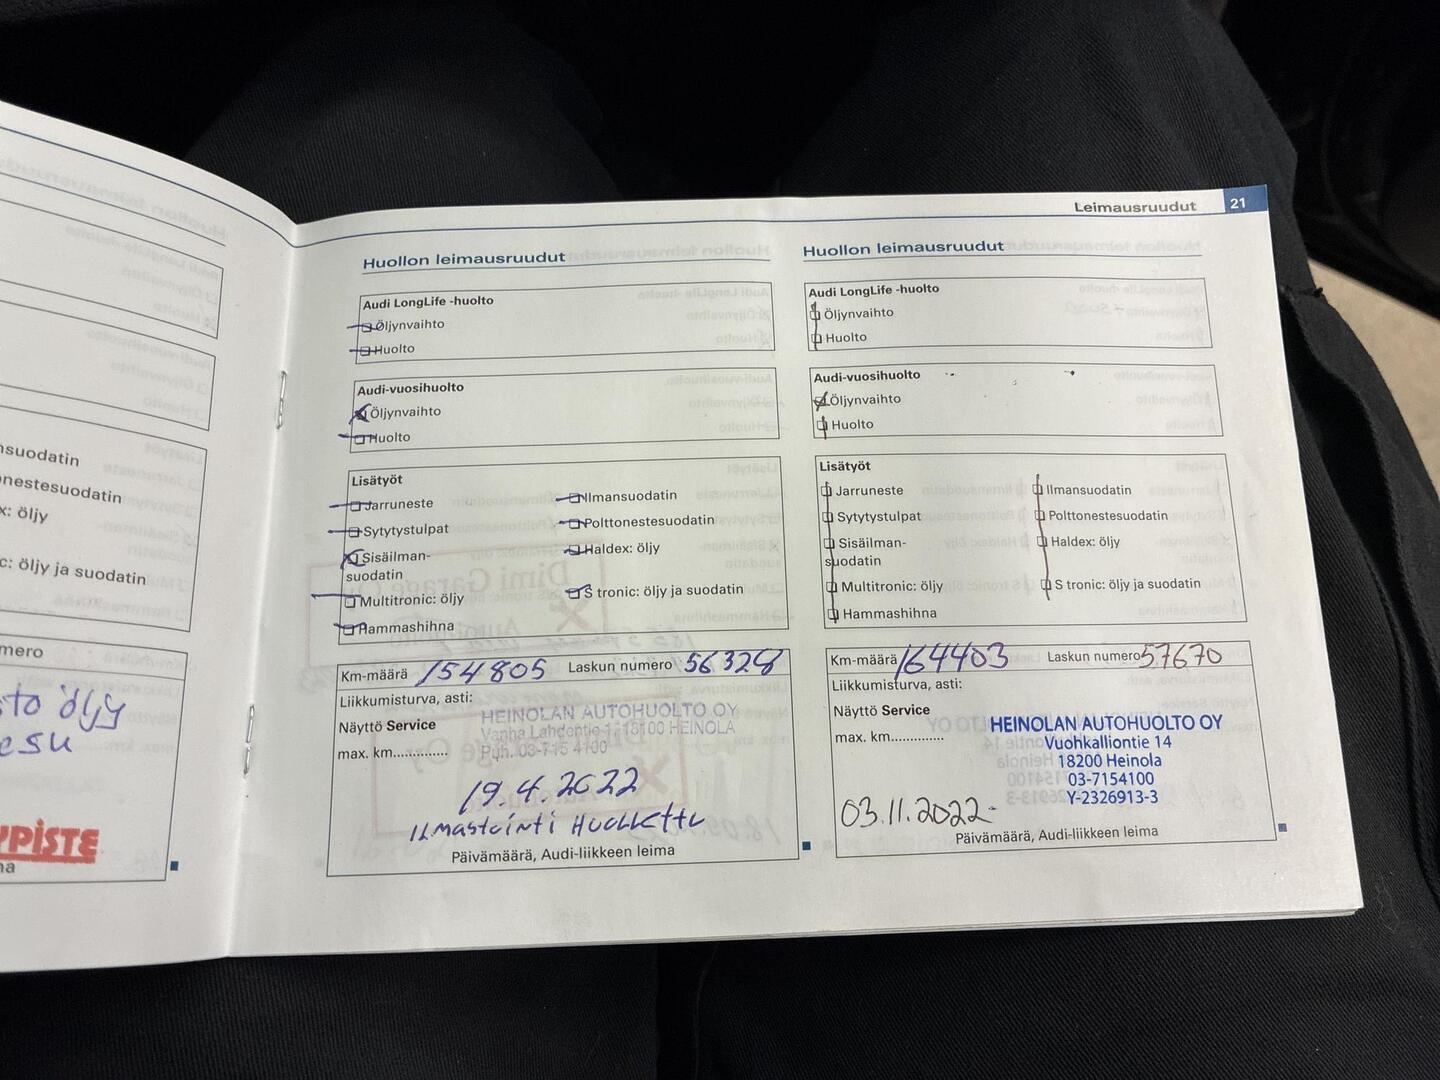 Leimausruudut 21
suodatin
nestesuodatin
x: öljy
c: öljy ja suodatin
mero
to öljy
PISTE
Huollon leimausruudut
Audi LongLife -huolto
Öljynvaihto
Huolto
Audi-vuosihuolto
Öljynvaihto
Huolto
Lisätyöt
Jarruneste Ilmansuodatin
Sytytystulpat Polttonestesuodatin
Sisäilman- Haldex: öljy
suodatin
Multitronic: öljy S tronic: öljy ja suodatin
Hammashihna
Km-määrä 154805 Laskun numero 56328
Liikkumisturva, asti:
Näyttö Service
max. km.............
HEINOLAN AUTOHUOLTO OY
Vanha Lahdentie 1 18100 HEINOLA
Puh. 03-715 4100
19.4.2022
Ilmastointi Huollettu
Päivämäärä, Audi-liikkeen leima
Huollon leimausruudut
Audi LongLife -huolto
Öljynvaihto
Huolto
Audi-vuosihuolto
Öljynvaihto
Huolto
Lisätyöt
Jarruneste Ilmansuodatin
Sytytystulpat Polttonestesuodatin
Sisäilman- Haldex: öljy
suodatin
Multitronic: öljy S tronic: öljy ja suodatin
Hammashihna
Km-määrä 164403 Laskun numero 57670
Liikkumisturva, asti:
Näyttö Service
max. km.............
HEINOLAN AUTOHUOLTO OY
Vuohkalliontie 14
18200 Heinola
03-7154100
Y-2326913-3
03.11.2022-
Päivämäärä, Audi-liikkeen leima